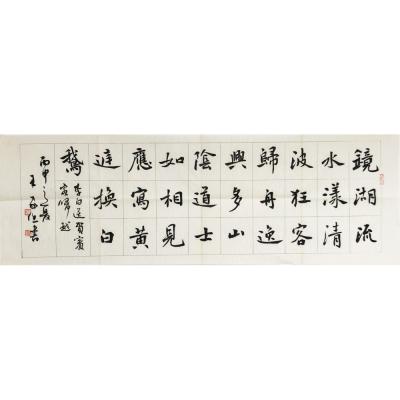 鏡湖流
水漾清
波狂客
歸舟逸
興多山
陰道士
如相見
應寫黃
庭換白
鵝
李白送賀賓
客歸越
丙申之
王 書